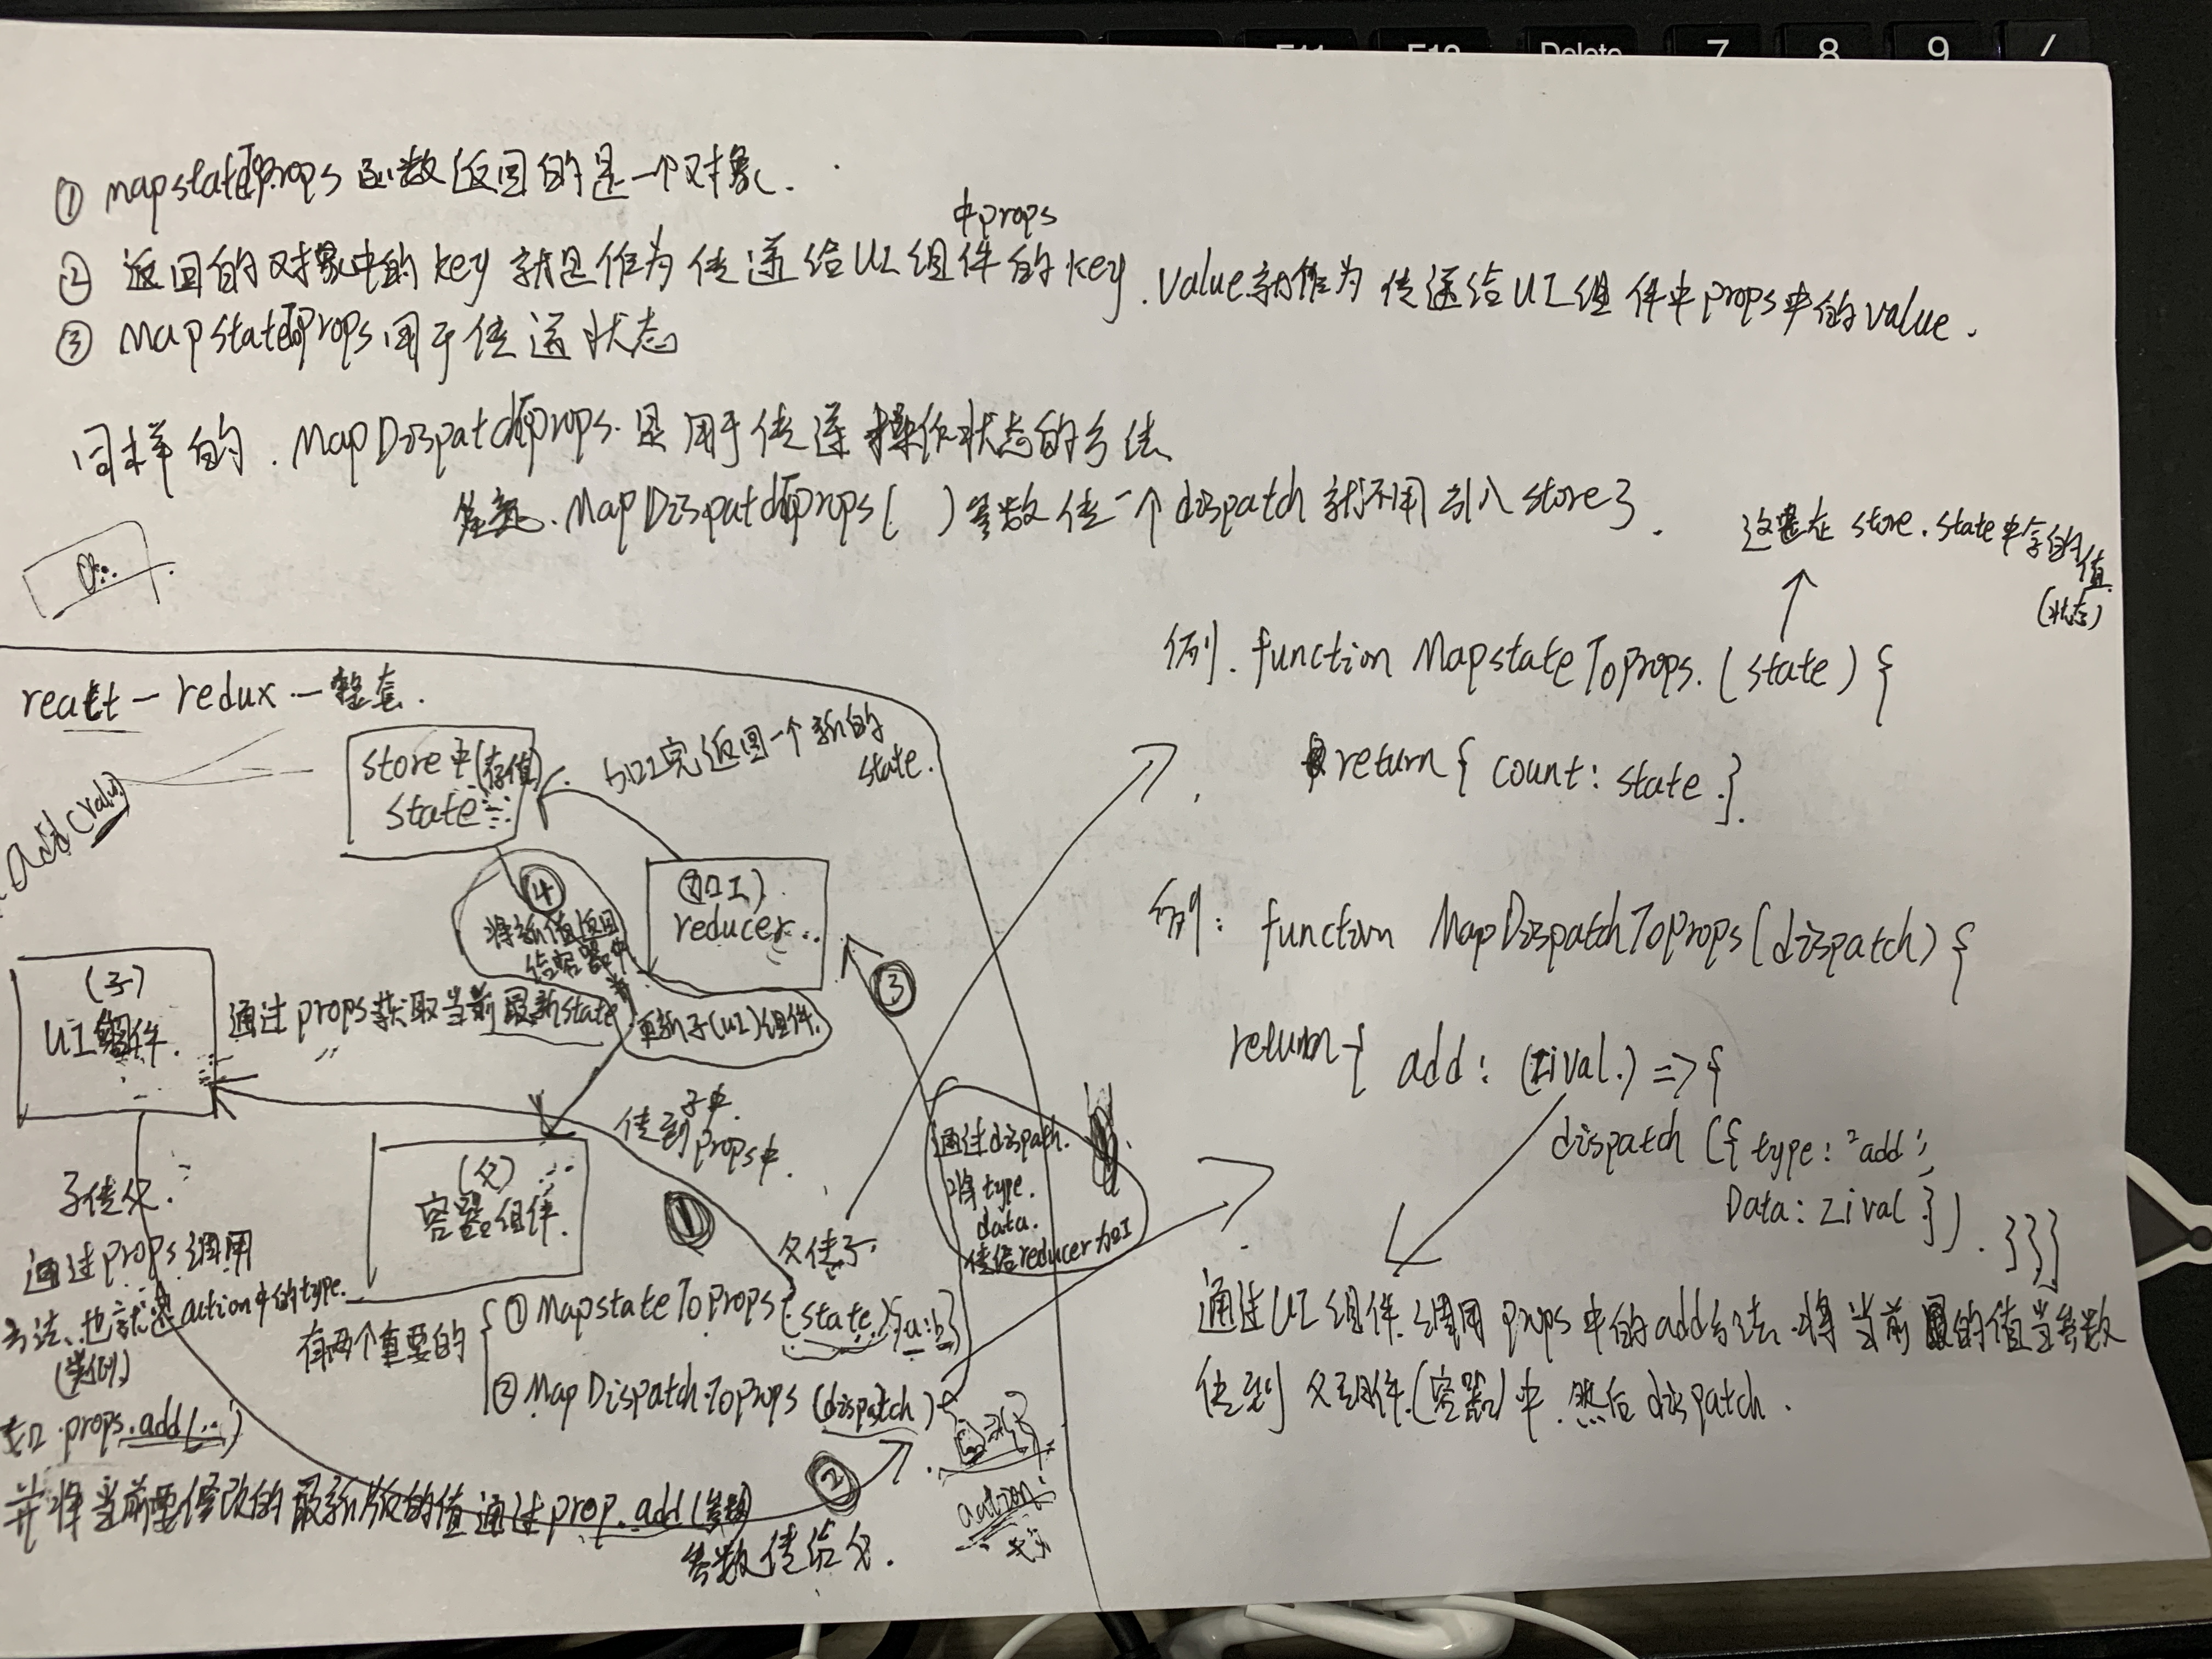 F11 F12 Delete 7 8 9 /
① mapstateToProps 函数返回的是一个对象.
中props
② 返回的对象中的 key 就是作为传递给UI组件的key.value就作为传递给UI组件中props中的value.
③ MapstateToProps用于传递状态
同样的.MapDispatchToProps.是用于传递操作状态的方法
MapDispatchToProps( )参数传一个dispatch就不用引入store了.
这是在 store.state中存的值
(状态)
例.function MapstateToProps.(state){
return{ count: state.}
例: function MapDispatchToProps(dispatch){
return{ add: (zival.) =>{
dispatch ({ type: "add",
Data: zival }) . }}}
通过UI组件.调用props中的add方法.将当前的值当参数
传到父组件.(容器)中.然后dispatch.
react-redux一整套.
store中(存值)
state
加工完返回一个新的
state.
add(value)
(加工)
reducer..
④
将新值返回
给容器中
更新子(UI)组件.
③
(子)
UI组件.
通过props获取当前最新state
传到子中.
props中.
(父)
容器组件.
①
父传子.
通过dispath.
将type.
data.
传给reducer加工
子传父.
通过props调用
方法、也就是action中的type.
(类例)
如.props.add(...)
有两个重要的
① MapstateToProps(state){a:b}
② MapDispatchToProps (dispatch){
②
action
并将当前要修改的最新版的值通过prop.add(参数)
参数传给父.